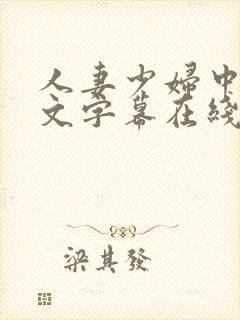 人妻少婦中
文字幕在綫
梁其發